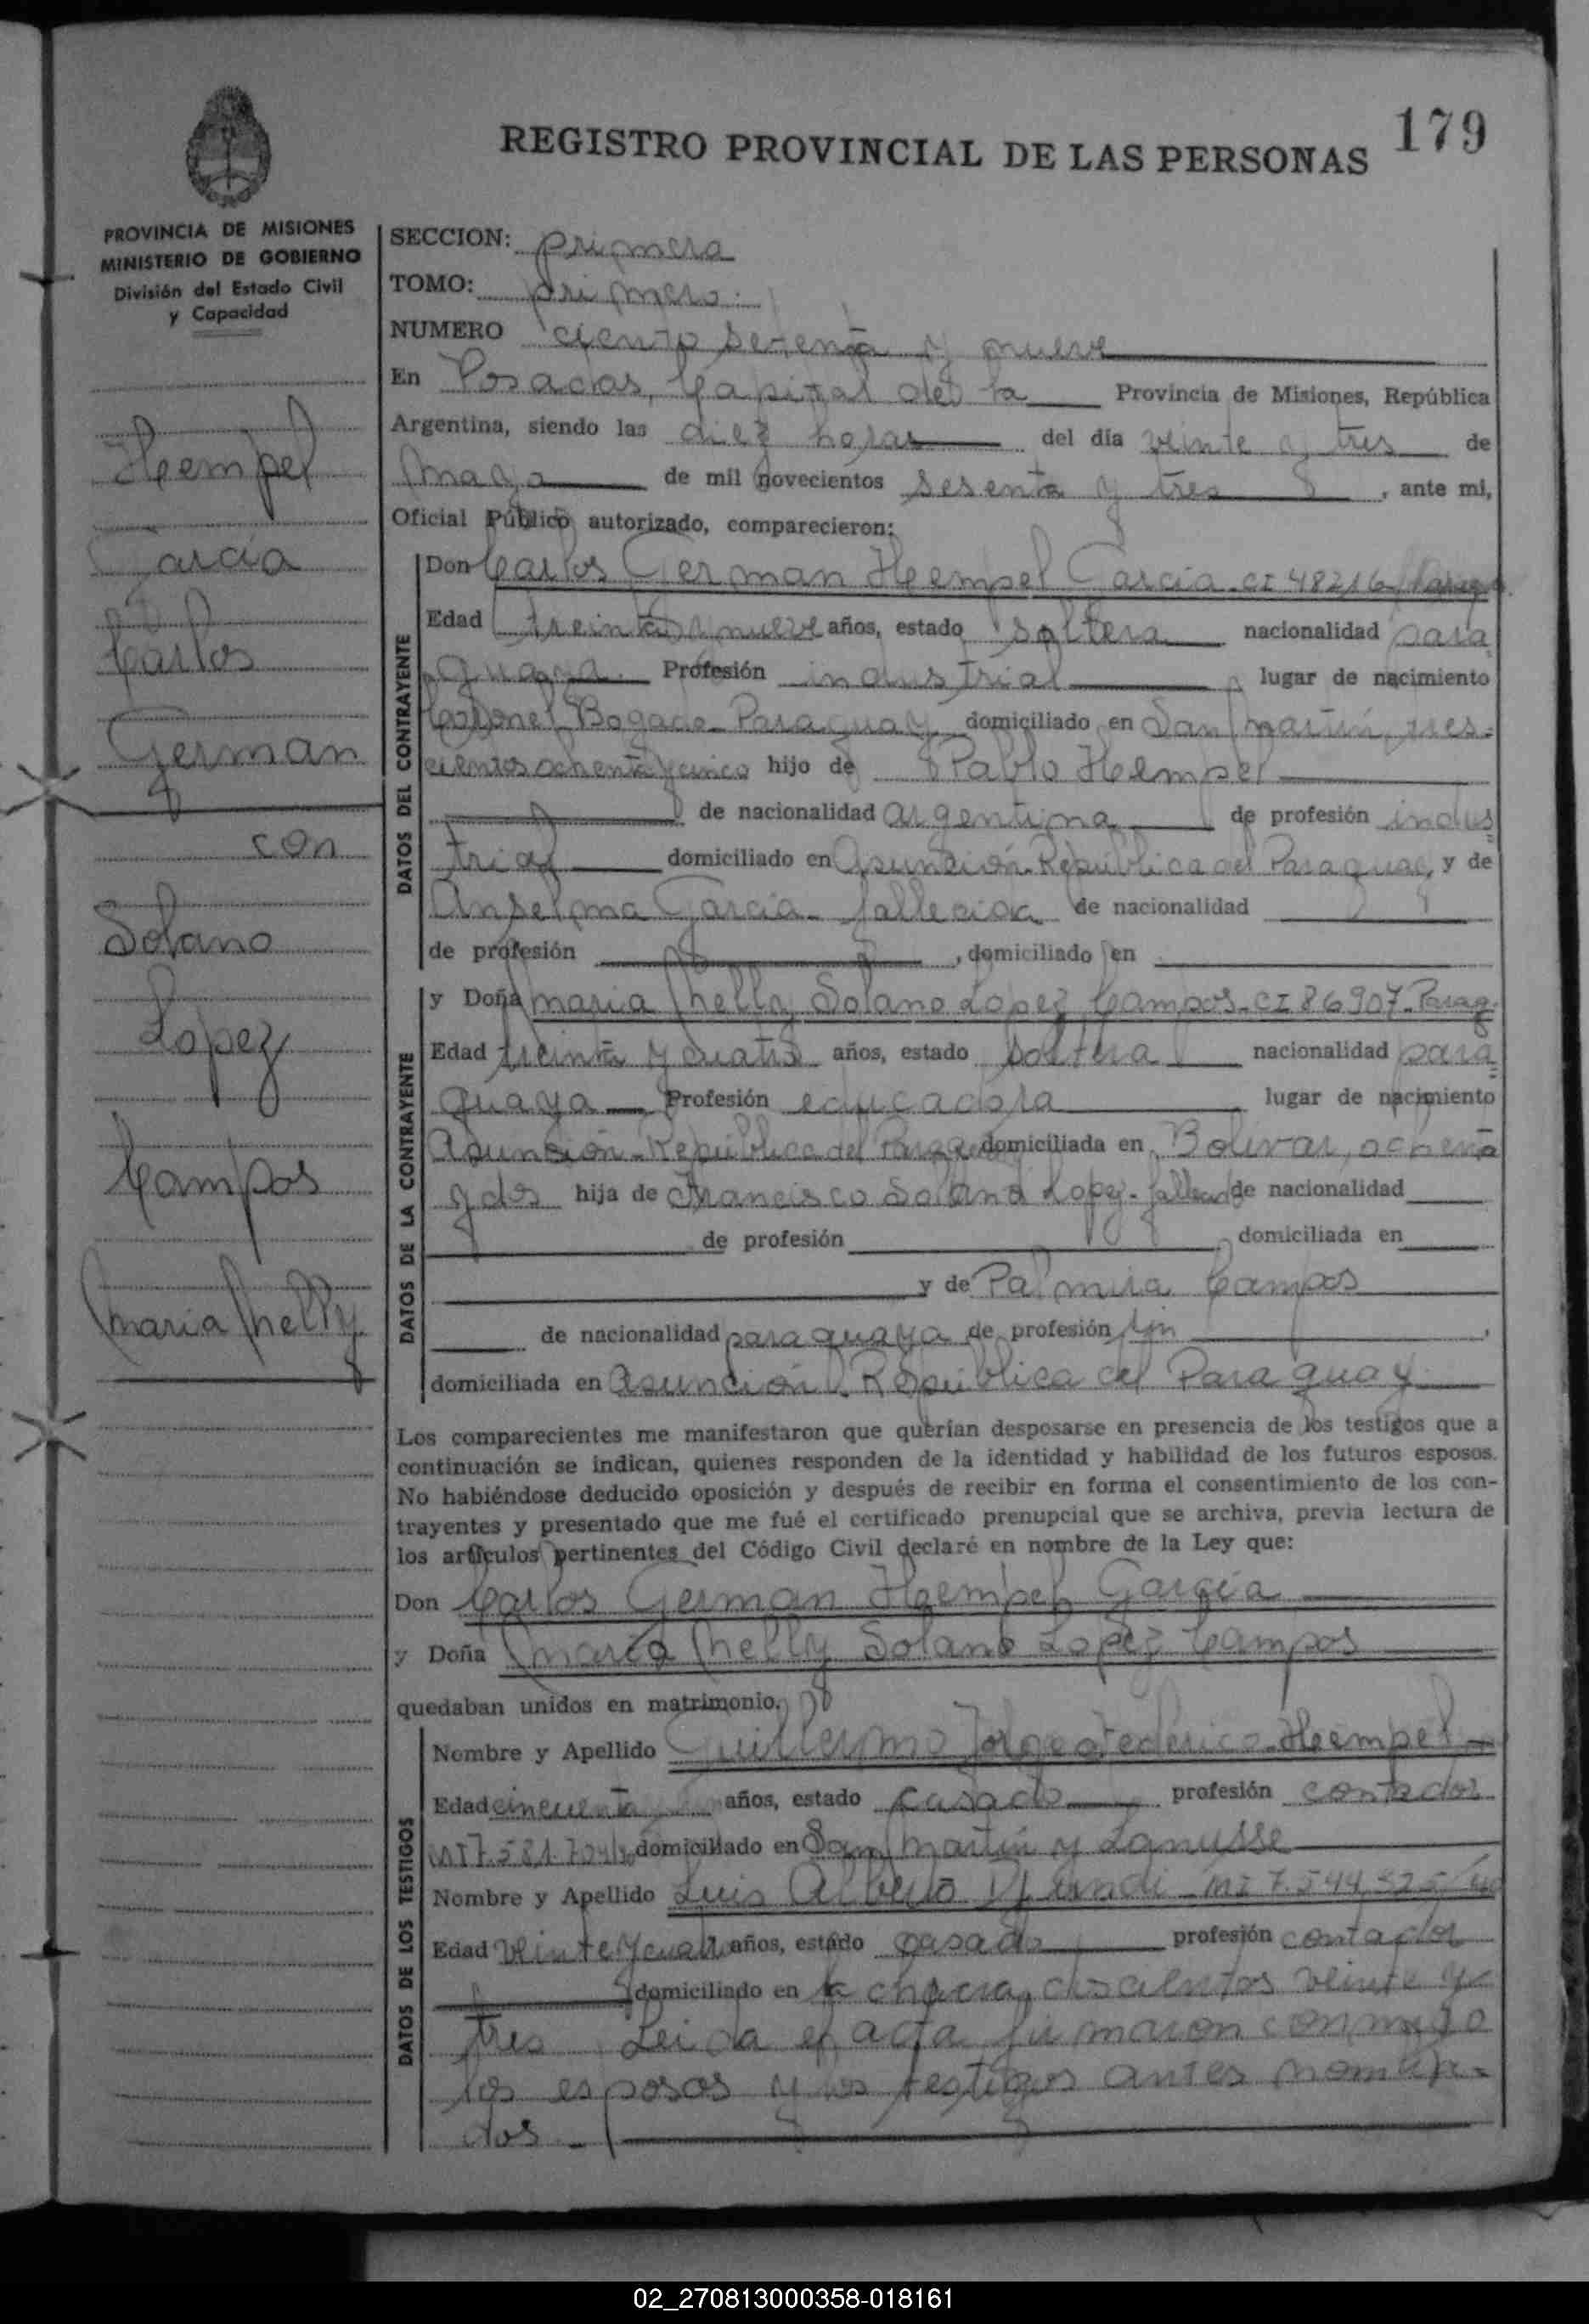 REGISTRO PROVINCIAL DE LAS PERSONAS
179
PROVINCIA DE MISIONES
MINISTERIO DE GOBIERNO
División del Estado Civil
y Capacidad
Hempel
Garcia
Carlos
German
con
Solano
Lopez
Campos
Maria Nelly
SECCION: primera
TOMO: primero.
NUMERO ciento setenta y nueve
En Posadas, Capital de la Provincia de Misiones, República
Argentina, siendo las diez horas del día veinte y tres de
Mayo de mil novecientos sesenta y tres, ante mi,
Oficial Público autorizado, comparecieron:
DATOS DEL CONTRAYENTE
Don Carlos German Hempel Garcia - CI 48216 Parag.
Edad treinta y nueve años, estado soltero nacionalidad para
guaya. Profesión industrial lugar de nacimiento
Coronel Bogado - Paraguay domiciliado en San Martín, tres-
cientos ochenta y cinco hijo de Pablo Hempel
de nacionalidad argentina de profesión indus
trial domiciliado en Asunción - República del Paraguay, y de
Anselma Garcia - fallecida de nacionalidad
de profesión , domiciliado en
DATOS DE LA CONTRAYENTE
y Doña Maria Nelly Solano Lopez Campos - CI 86907 - Parag.
Edad treinta y cuatro años, estado soltera nacionalidad para
guaya Profesión educadora lugar de nacimiento
Asunción - República del Paraguay domiciliada en Bolivar, ochenta
y dos hija de Francisco Solano Lopez - fallecido de nacionalidad
de profesión domiciliada en
y de Palmira Campos
de nacionalidad paraguaya de profesión
domiciliada en Asunción - República del Paraguay
Los comparecientes me manifestaron que querían desposarse en presencia de los testigos que a
continuación se indican, quienes responden de la identidad y habilidad de los futuros esposos.
No habiéndose deducido oposición y después de recibir en forma el consentimiento de los con-
trayentes y presentado que me fué el certificado prenupcial que se archiva, previa lectura de
los artículos pertinentes del Código Civil declaré en nombre de la Ley que:
Don Carlos German Hempel García
y Doña Maria Nelly Solano Lopez Campos
quedaban unidos en matrimonio.
DATOS DE LOS TESTIGOS
Nombre y Apellido Guillermo Jorge Federico Hempel
Edad cincuenta años, estado casado profesión contador
domiciliado en San Martín y Lanusse
Nombre y Apellido Luis Alberto
Edad veinte y cuatro años, estado casado profesión contador
domiciliado en la chacra, doscientos veinte y
tres Leida el acta firmaron conmigo
los esposos y los testigos antes nombra-
dos -
02_270813000358-018161